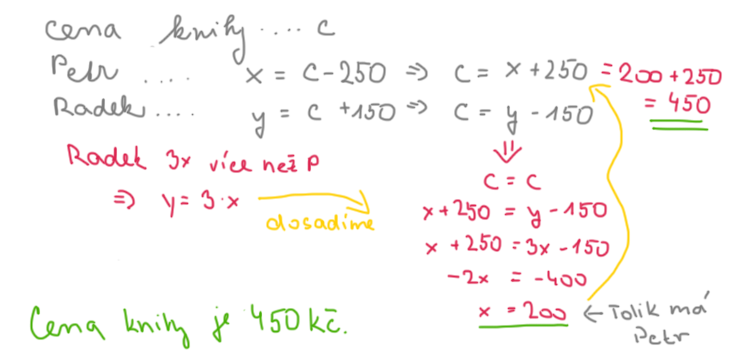 cena knihy .... c
Petr .... x = c-250 => c = x+250 = 200+250
= 450
Radek .... y = c +150 => c = y -150
Radek 3x více než P
=> y = 3·x
dosadíme
c = c
x+250 = y -150
x +250 = 3x -150
-2x = -400
x = 200 ← Tolik má
Petr
Cena knihy je 450 kč.